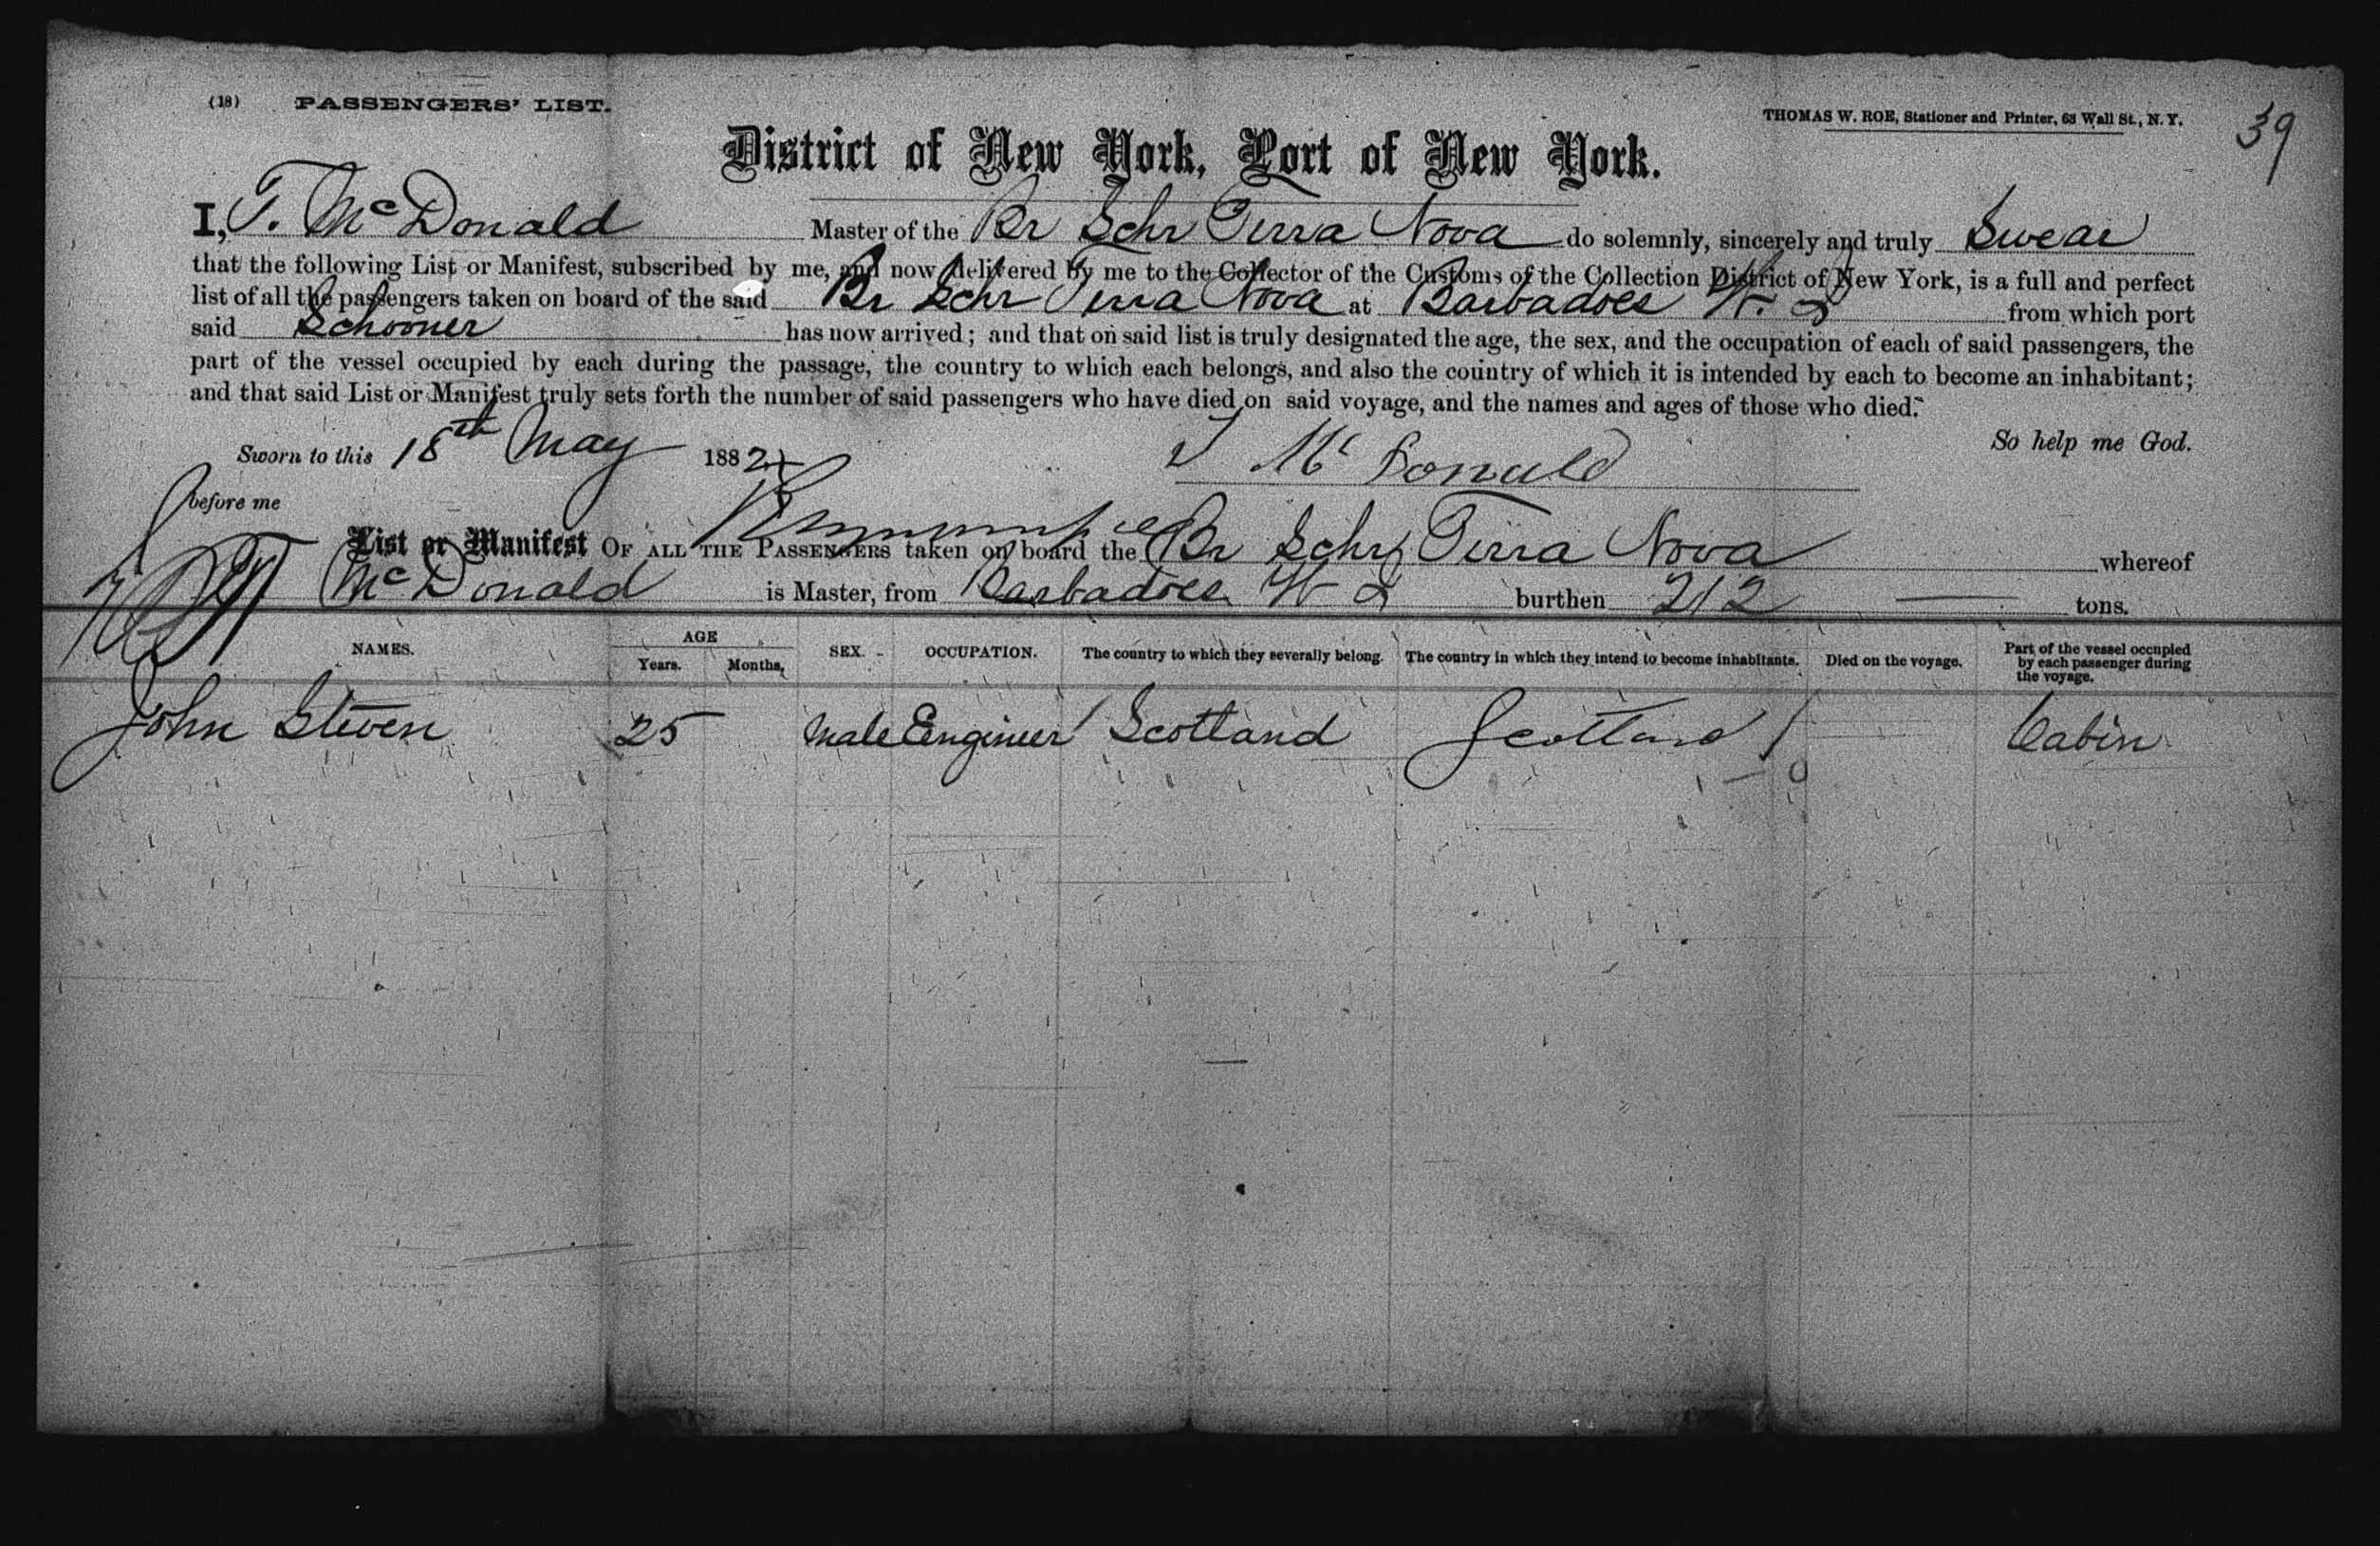 (18) PASSENGERS' LIST.
THOMAS W. ROE, Stationer and Printer, 63 Wall St., N. Y.
39
District of New York, Port of New York.
I, T. McDonald Master of the Br Schr Terra Nova do solemnly, sincerely and truly Swear
that the following List or Manifest, subscribed by me, and now delivered by me to the Collector of the Customs of the Collection District of New York, is a full and perfect
list of all the passengers taken on board of the said Br Schr Terra Nova at Barbadoes W. I from which port
said Schooner has now arrived; and that on said list is truly designated the age, the sex, and the occupation of each of said passengers, the
part of the vessel occupied by each during the passage, the country to which each belongs, and also the country of which it is intended by each to become an inhabitant;
and that said List or Manifest truly sets forth the number of said passengers who have died on said voyage, and the names and ages of those who died.
So help me God.
Sworn to this 18th May 1882
T McDonald
before me
List or Manifest OF ALL THE PASSENGERS taken on board the Br Schr Terra Nova whereof
McDonald is Master, from Barbadoes W I burthen 212 tons.
NAMES. AGE Years. Months, SEX. OCCUPATION. The country to which they severally belong. The country in which they intend to become inhabitants. Died on the voyage. Part of the vessel occupied by each passenger during the voyage.
John Steven 25 Male Engineer Scotland Scotland Cabin